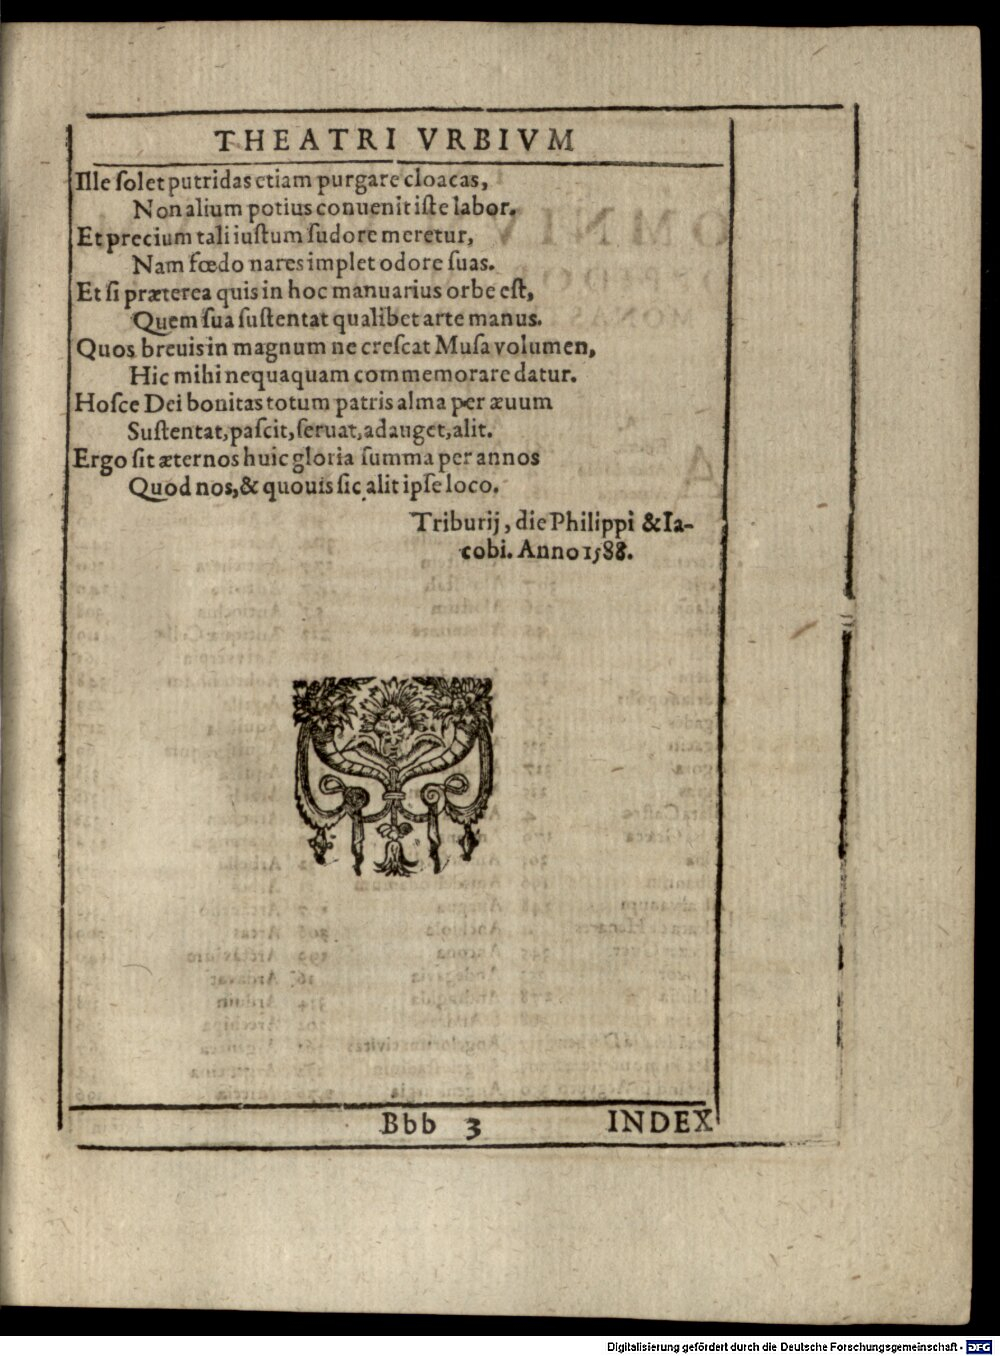 THEATRI VRBIVM
Ille ſolet putridas etiam purgare cloacas,
Non alium potius conuenit iſte labor.
Et precium tali iuſtum ſudore meretur,
Nam fœdo nares implet odore ſuas.
Et ſi præterea quis in hoc manuarius orbe eſt,
Quem ſua ſuſtentat qualibet arte manus.
Quos breuis in magnum ne creſcat Muſa volumen,
Hic mihi nequaquam commemorare datur.
Hoſce Dei bonitas totum patris alma per æuum
Suſtentat, paſcit, ſeruat, adauget, alit.
Ergo ſit æternos huic gloria ſumma per annos
Quod nos, & quouis ſic alit ipſe loco.
Triburij, die Philippi & Ia-
cobi. Anno 1588.
Bbb 3 INDEX
Digitalisierung gefördert durch die Deutsche Forschungsgemeinschaft - DFG